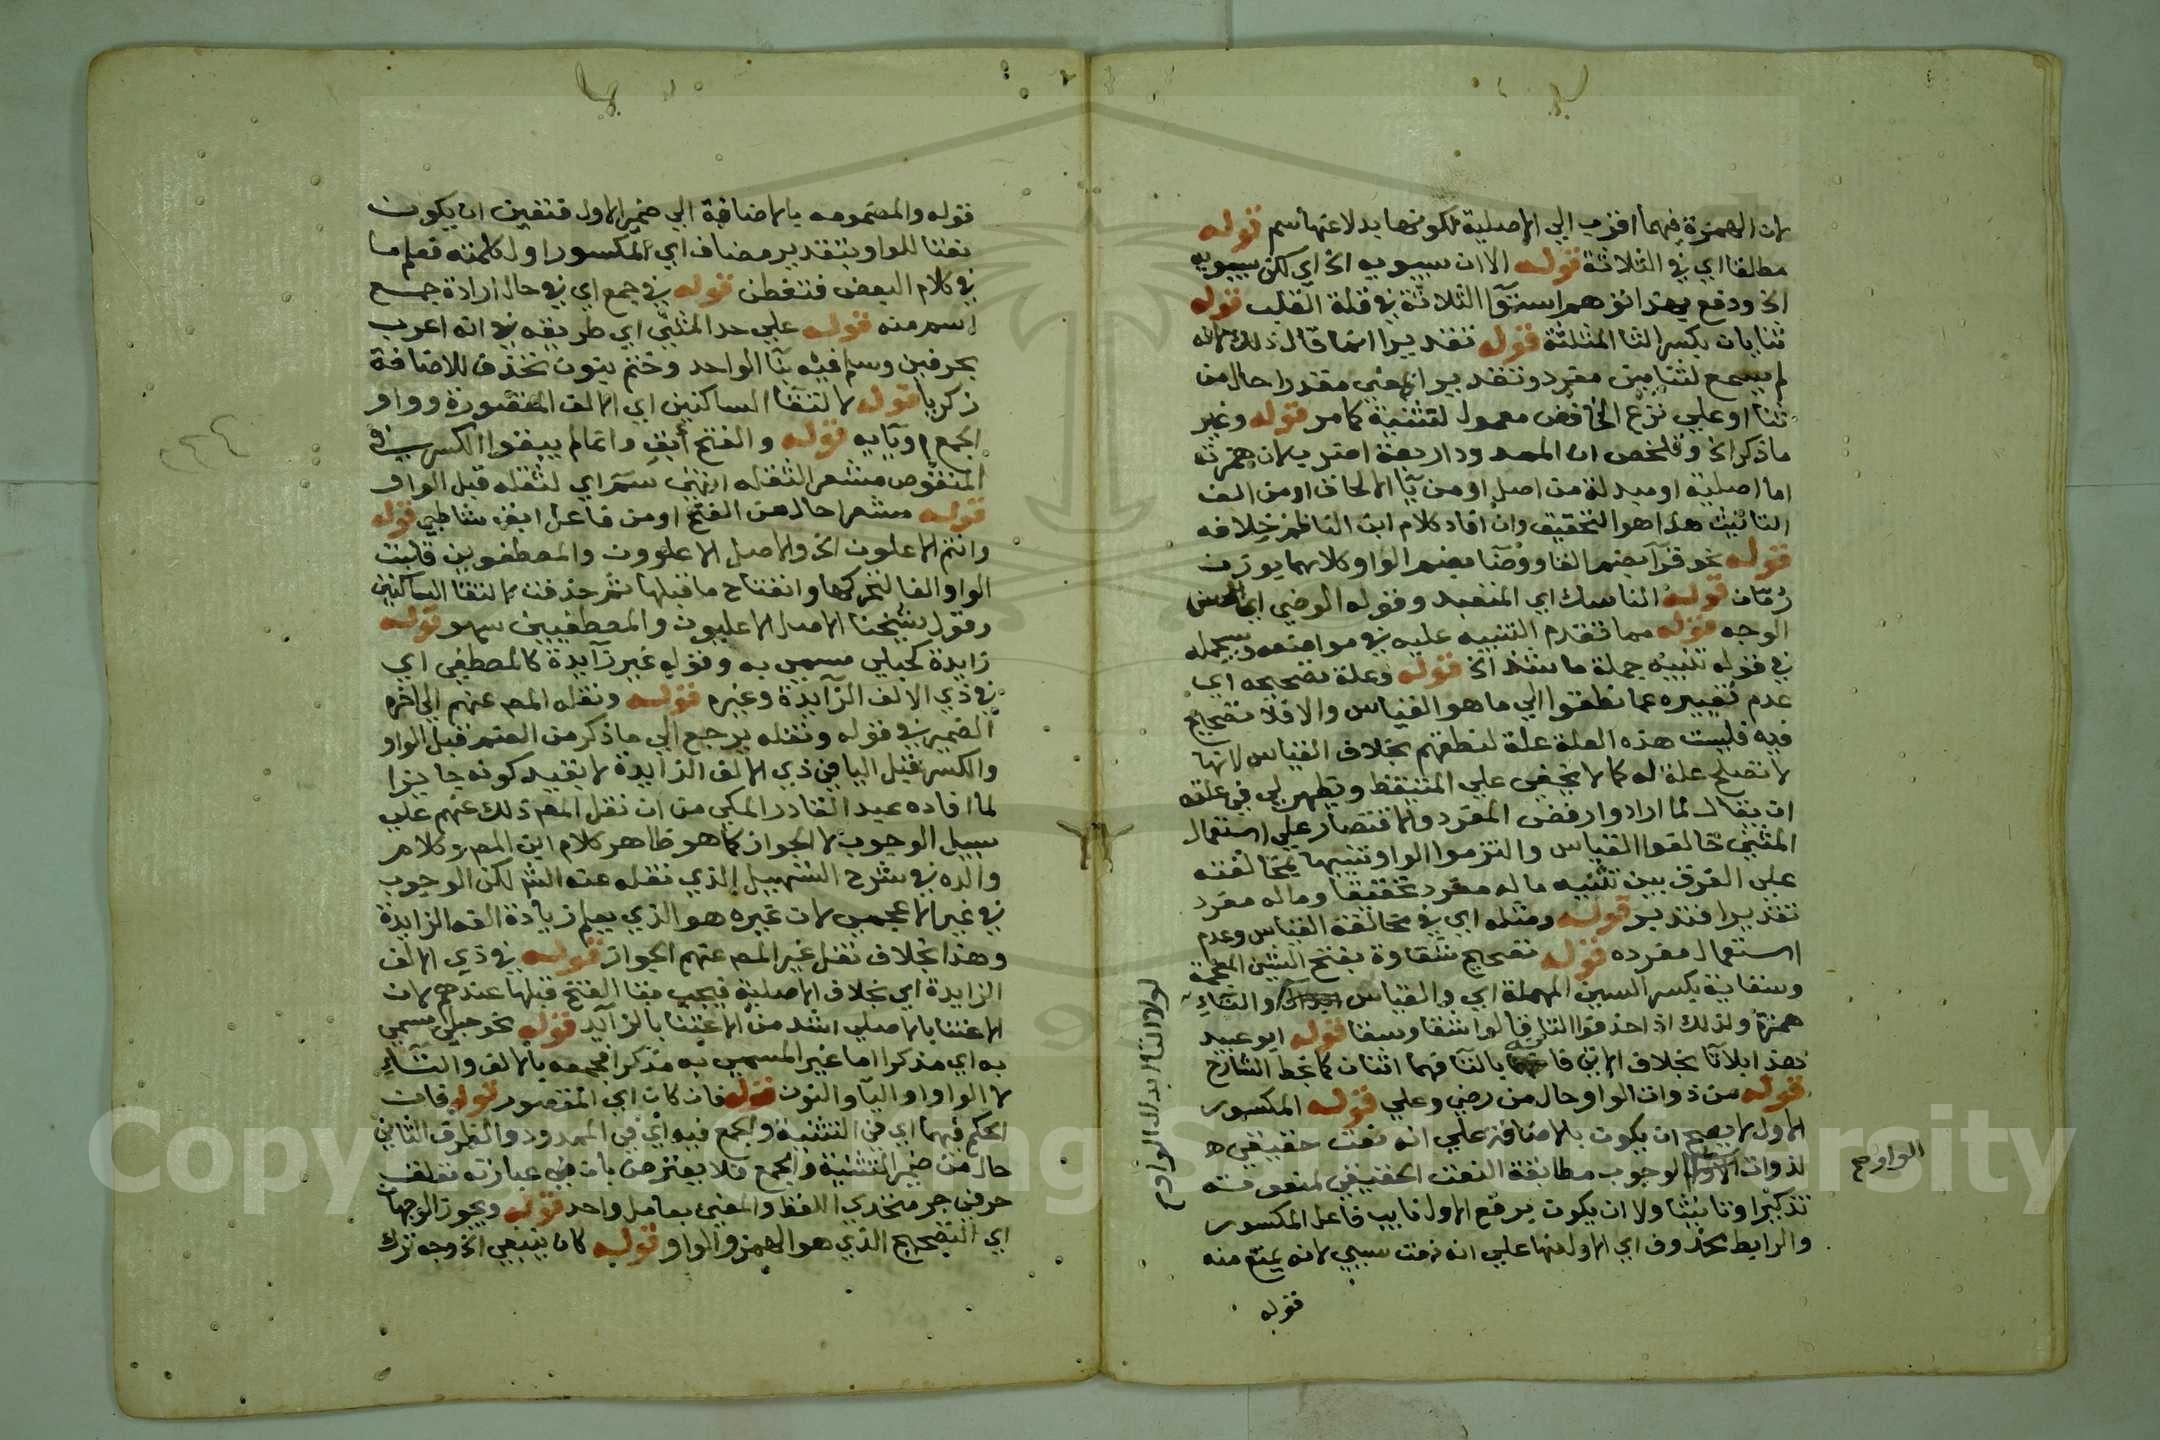 لان الهمزة فيهما اقرب الي الاصلية لكونها بدلا عنها سم قوله
مطلقا اي في الثلاثة قوله الا ان سيبويه الخ اي لكن سيبويه
الخ ودفع بهذا توهم استوآ الثلاثة في قلة القلب قوله
ثنايان بكسر الثا المثلثة قوله تقديرا انما قال ذلك لانه
لم يسمع لثنايين مفرد وتقديرا بمعني مقدرا حال من
ثنا او علي نزع الخافض معمول لتثنية كما مر قوله وغير
ما ذكر الخ وتلخص ان الممدود اربعة اضرب لان همزته
اما اصلية او مبدلة من اصل او من يآ الالحاق او من الف
التانيث هذا هو التحقيق وان افاد كلام ابن الناظم خلافه
قوله نحو قرآ بضم القاف ووضآ بضم الواو وكلاهما بوزن
رمان قوله الناسك اي المتعبد وقوله الوضي اي الحسن
الوجه قوله مما تقدم التنبيه عليه في مواضعه وسيجمله
في قوله تنبيه جملة ما شذ الخ قوله وعلة تصحيحه اي
عدم تغييره عما نطقوا الي ما هو القياس والا فلا تصحيح
فيه فليست هذه العلة علة لنطقهم بخلاف القياس لانها
لا تصلح علة له كما لا يخفي علي المتيقظ ويظهر لي في علته
ان يقال لما ارادوا رفض المفرد والاقتصار علي استعمال
المثني خالفوا القياس والتزموا الواو تنبيها بمخالفته
علي الفرق بين تثنيه ما له مفرد تحقيقا وما له مفرد
تقديرا فتدبر قوله ومثله اي في مخالفة القياس وعدم
استعمال مفرده قوله تصحيح شقاوة بفتح الشين المعجمة
وسقاية بكسر السين المهملة اي والقياس والتاء
همزة ولذلك اذا حذفوا التا قالوا شقا وسقا قوله ابو عبيد
بهذا بلا تا بخلاف الاتي فانه بالتآ فهما اثنان كما بخط الشارح
قوله من ذوات الواو حال من رضي وعلي قوله المكسور
الاول لا يصح ان يكون بالاضافة علي انه نعت حقيقي
لذوات الواو لوجوب مطابقة النعت الحقيقي لمنعوته
تذكيرا وتانيثا ولا ان يكون برفع الاول نايب فاعل المكسور
والرابط محذوف اي الاول منها علي انه نعت سببي لانه يمنع منه
قوله
لولا التاء ابدال الواو
الواو صح
قوله والمضمومه بالاضافة الي ضمير الاول فتعين ان يكون
نعتا للواو بتقدير مضاف اي المكسور اول كلمته فعلم ما
في كلام البعض فتفطن قوله في جمع اي في حال ارادة جمع
اسم منه قوله علي حد المثني اي طريقه في انه اعرب
بحرفين وسلم فيه بنا الواحد وختم بنون تحذف للاضافة
زكريا قوله لالتقا الساكنين اي الالف المقصورة وواو
الجمع او يآيه قوله والفتح أبق وانما لم يبقوا الكسر في
المنقوص مشعرا لثقله انتهي سم اي لثقله قبل الواو
قوله مشعرا حال من الفتح او من فاعل ابق شاطبي قوله
وانتم الاعلون الخ والاصل الاعلوون والمصطفوين قلبت
الواو الفا لتحركها وانفتاح ما قبلها ثم حذفت لالتقا الساكنين
وقول شيخنا الاصل الاعليون والمصطفيين سهو قوله
زايدة كحبلي مسمي به وقوله غير زآيدة كالمصطفي اي
في ذي الالف الزآيدة وغيره قوله ونقله المص عنهم الي اخره
الضمير في قوله ونقله يرجع الي ما ذكر من الضم قبل الواو
والكسر قبل اليا في ذي الالف الزايدة لا بقيد كونه جايزا
لما افاده عبد القادر المكي من ان نقل المص ذلك عنهم علي
سبيل الوجوب لا الجواز كما هو ظاهر كلام ابن المص وكلام
والده في شرح التسهيل الذي نقله عنه الشم لكن الوجوب
في غير الاعجمي لان غيره هو الذي يعلم زيادة الفه الزايدة
وهذا بخلاف نقل غير المص عنهم الجواز قوله في ذي الالف
الزايدة اي بخلاف الاصلية فيجب بقا الفتح قبلها عندهم لان
الاعتنا بالاصلي اشد من الاعتنا بالزآيد قوله نحو حبلي مسمي
به اي مذكرا اما غير المسمي به مذكرا فجمعه بالالف والتآء
لا الواو او اليآ والنون قوله فان كان اي المقصور قوله فان
الحكم فيهما اي في التثنية والجمع فيه اي في الممدود والظرف الثاني
حال من ضمير التثنية والجمع فلا يعترض بان في عبارته تعلق
حرفي جر متحدي اللفظ والمعني بعامل واحد قوله ويجوز الوجهان
اي التصحيح الذي هو الهمز والواو قوله كان ينبغي الخ وجه ترك